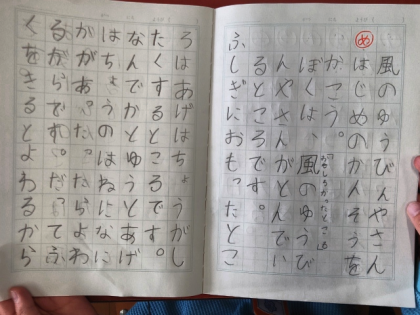 め
風のゆうびんやさん
はじめのかんそうを
かこう。
ぼくは、風のゆうび
んやさんがとんでい
るところです。
ふしぎにおもったとこ
ろはあげはちょうがし
たくするところです。
とゆうとあげ
はちょうのはねになに
かがあ
らよわ
るからです。だからふ
くをきるとよわるから